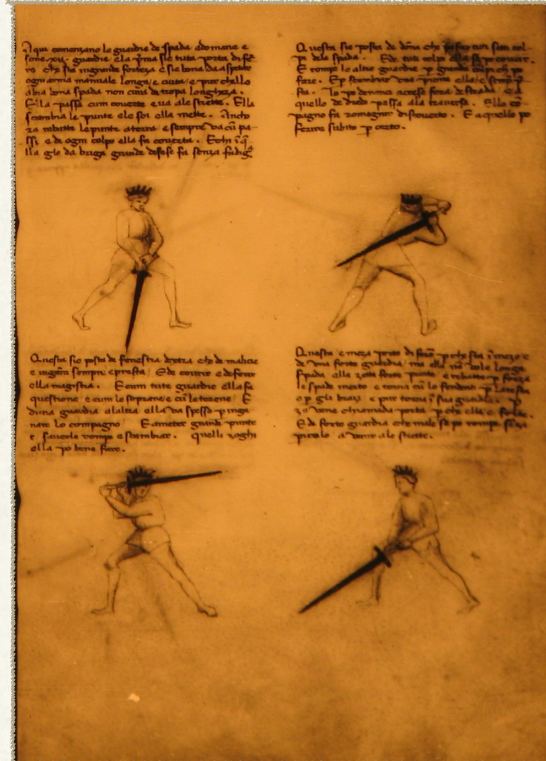 Aqui comenzano le guardie de spada a do mane e
sono xii. guardie e la prima sie tuta porta di fe
ro che sta in grande forteza e sie bona da aspetar
ogni arma manuale longa e curta e pur chello
abia bona spada non cura de tropa longheza.
Ella passa cum coverta e va ale strette. Ella
scambia le punte e le soi ella mette. Ancho
ra rebatte le punte a terra e sempre va cu pa
ssi e de ogni colpo ella fa coverta. E chi i q
lla gle da briga grande defese fa senza fadiga
Questa sie posta de dona che po far tuti setti col
pi dela spada. E de tuti colpi ella se po covrar.
E rompe le altre guardie p grandi colpi che po
fare. E p scambiar una punta ella e semp p
sta. Lo pe denanci acresse fora de strada. E
quello de dredo passa ala traversa. E lo co
pagno fa romagnir discoverto. E quello po
ferire subito p certo.
Questa sie posta de fenestra dextra che de malicie
e ingani sempre e presta. E de covrir e de ferire
ella magistra. E cum tute guardie ella fa
questione e cum le soprane e cu le terene. E
duna guardia a laltra ella va spesso p inga
nare lo compagno. E a metter grande punte
e saverle romper e scambiar. quelli zoghi
ella po bene fare.
Questa e meza porta di ferro p che sta i mezo e
de una forte guardia. ma ella no vole longa
spada. ella zetta forte punte e rebatte p forza
e torna cu lo fendente p la testa
o p gli brazi e pur torna i sua guardia. P
zo vene chiamada porta p che ella e forte.
E de forte guardia che male se po romper senza
piricolo a vegnir ale strette.